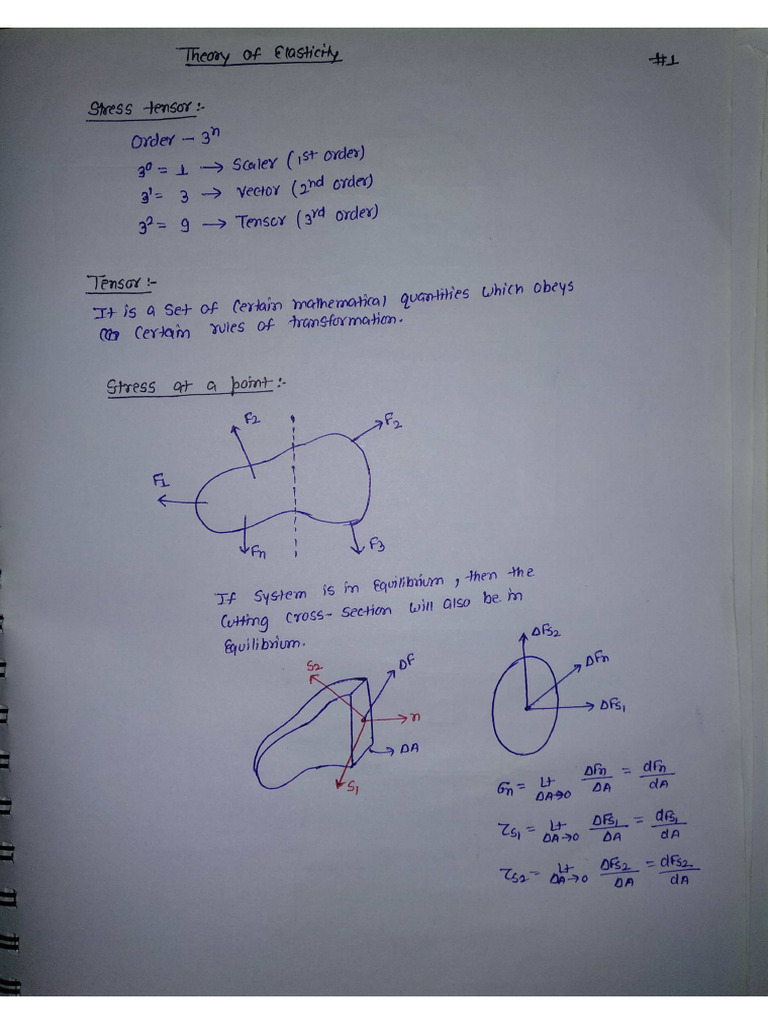 Theory of Elasticity
#1
Stress tensor:-
Order - 3ⁿ
3⁰ = 1 → Scaler (1st order)
3¹ = 3 → Vector (2nd order)
3² = 9 → Tensor (3rd order)
Tensor:-
It is a set of certain mathematical quantities which obeys
certain rules of transformation.
Stress at a point:-
F2
F2
F1
Fn
F3
If system is in equilibrium, then the
cutting cross-section will also be in
equilibrium.
S2
ΔF
n
ΔA
S1
ΔFS2
ΔFn
ΔFS1
σn = Lt ΔA→0 ΔFn/ΔA = dFn/dA
τS1 = Lt ΔA→0 ΔFS1/ΔA = dFS1/dA
τS2 = Lt ΔA→0 ΔFS2/ΔA = dFS2/dA